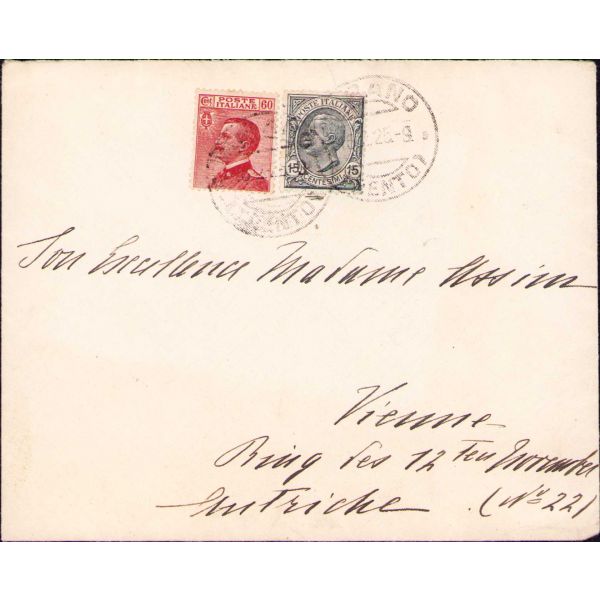 Cent. POSTE ITALIANE 60
POSTE ITALIANE
15 CENTESIMI 15
25-9
(TRENTO)
Son Excellence Madame Assim
Vienne
Ring des 12 ten November
Autriche (No 22)